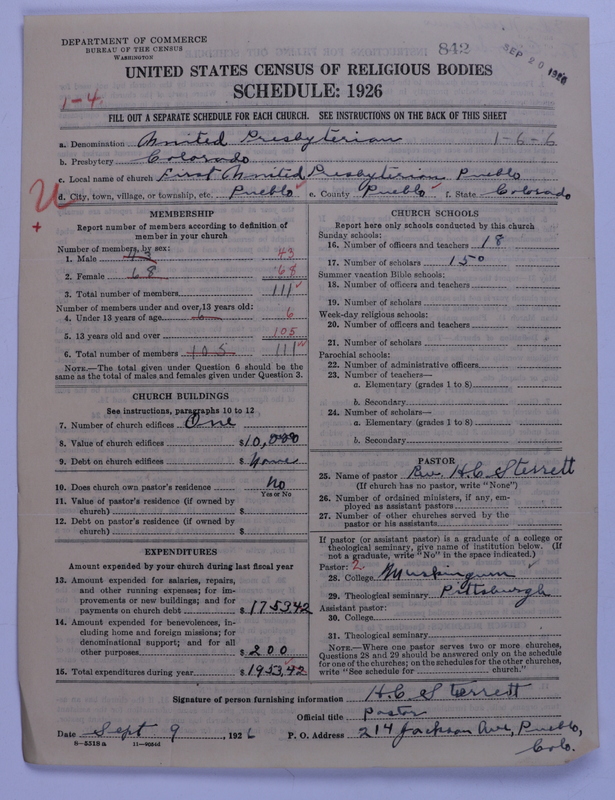 DEPARTMENT OF COMMERCE
BUREAU OF THE CENSUS
WASHINGTON
842
SEP 20 1926
UNITED STATES CENSUS OF RELIGIOUS BODIES
SCHEDULE: 1926
1-4
FILL OUT A SEPARATE SCHEDULE FOR EACH CHURCH. SEE INSTRUCTIONS ON THE BACK OF THIS SHEET
a. Denomination United Presbyterian 1-6-6
b. Presbytery Colorado
c. Local name of church First United Presbyterian Pueblo
d. City, town, village, or township, etc. Pueblo e. County Pueblo f. State Colorado
MEMBERSHIP
Report number of members according to definition of
member in your church
Number of members, by sex:
1. Male 43 43
2. Female 68 68
3. Total number of members 111
Number of members under and over 13 years old:
4. Under 13 years of age 6 6
5. 13 years old and over 105
6. Total number of members 105 111
NOTE.—The total given under Question 6 should be
same as the total of males and females given under Question 3.
CHURCH BUILDINGS
See instructions, paragraphs 10 to 12
7. Number of church edifices One
8. Value of church edifices $10,000
9. Debt on church edifices $ None
10. Does church own pastor's residence No
Yes or No
11. Value of pastor's residence (if owned by
church) $
12. Debt on pastor's residence (if owned by
church) $
EXPENDITURES
Amount expended by your church during last fiscal year
13. Amount expended for salaries, repairs,
and other running expenses; for im-
provements or new buildings; and for
payments on church debt $1753.42
14. Amount expended for benevolences, in-
cluding home and foreign missions; for
denominational support; and for all
other purposes $200
15. Total expenditures during year $1953.42
CHURCH SCHOOLS
Report here only schools conducted by this church
Sunday schools:
16. Number of officers and teachers 18
17. Number of scholars 150
Summer vacation Bible schools:
18. Number of officers and teachers
19. Number of scholars
Week-day religious schools:
20. Number of officers and teachers
21. Number of scholars
Parochial schools:
22. Number of administrative officers
23. Number of teachers—
a. Elementary (grades 1 to 8)
b. Secondary
24. Number of scholars—
a. Elementary (grades 1 to 8)
b. Secondary
PASTOR
25. Name of pastor Rev. H.C. Sterrett
(If church has no pastor, write "None")
26. Number of ordained ministers, if any, em-
ployed as assistant pastors
27. Number of other churches served by the
pastor or his assistants
If pastor (or assistant pastor) is a graduate of a college or
theological seminary, give name of institution below. (If
not a graduate, write "No" in the space indicated.)
Pastor: 2
28. College Muskingum
29. Theological seminary Pittsburgh
Assistant pastor:
30. College
31. Theological seminary
NOTE.—Where one pastor serves two or more churches,
Questions 28 and 29 should be answered only on the schedule
for one of the churches; on the schedules for the other churches,
write "See schedule for church."
Signature of person furnishing information H.C. Sterrett
Official title Pastor
Date Sept 9, 1926 P. O. Address 214 Jackson Ave, Pueblo,
Colo.
8-5318a